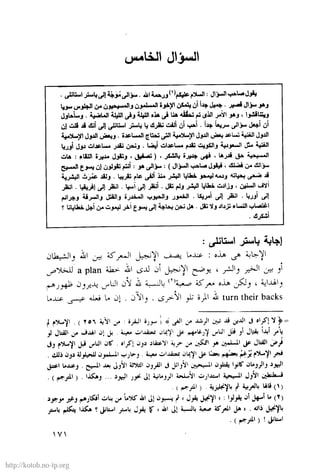 السؤال الخامس
يقول صاحب السؤال : السلام عليكم(١) ورحمة الله . سؤالي مُوَجَّه إلى باستر استانلي .
وهو سؤال قصير . جميل جداً أن يتمكن الإخوة المسلمون والمسيحيون من الجلوس سويا
ويتناقشوا ، وهو الأمر الذي تم تحققه هنا في هذه الليلة وفي الليلة الماضية . وسأحاول
أن أجعل سؤالي سريعاً جداً . أحب أن ألفت نظرك يا باستر استانلي إلى أنك قد قلت إن
الدول الغنية تساعد بعض الدول الإسلامية التي تحتاج المساعدة . وبعض الدول الإسلامية
الغنية مثل السعودية والكويت تقدم مساعدات أيضا . ونحن نقدر مساعدات دول أوربا
المسيحية حق قدرها . فهي جديرة بالشكر . ( تصفيق ، وتقول مديرة اللقاء : هات
سؤالك من فضلك . فيقول صاحب السؤال ) : سؤالي هو : أنتم تقولون إن يسوع المسيح
قد ضحى بحياته ودمه ليمحو خطايا البشر منذ ألفي عام تقريبا . ولقد عمرت البشرية
آلاف السنين . وزادت خطايا البشر ولم تقل . انظر إلى آسيا . انظر إلى إفريقيا . انظر
إلى أوربا . انظر إلى أمريكا . الخمور والحبوب المخدرة والقتل والسرقة وجرائم
اغتصاب النساء تزداد ولا تقل . هل نحن بحاجة إلى يسوع آخر ليموت من أجل خطايانا ؟
أشكرك .
إجابة باستر استانلي :
الإجابة هي هذه : عندما يصف الإنجيل المعركة بين الله والشيطان
أو بين الخير والشر ، يوضح الإنجيل أن لدى الله خطة a plan للخلاص
والهداية ، ولكن هذه معركة صعبة(٢) بالنسبة لله لأن الناس يديرون ظهورهم
turn their backs لله المرة تلو الأخرى . والآن . إن ما فعله عيسى عندما
(١) قالها بالعربية ثم بالإنجليزية . ( المترجم ) .
١٧١
http://kotob.no-ip.org